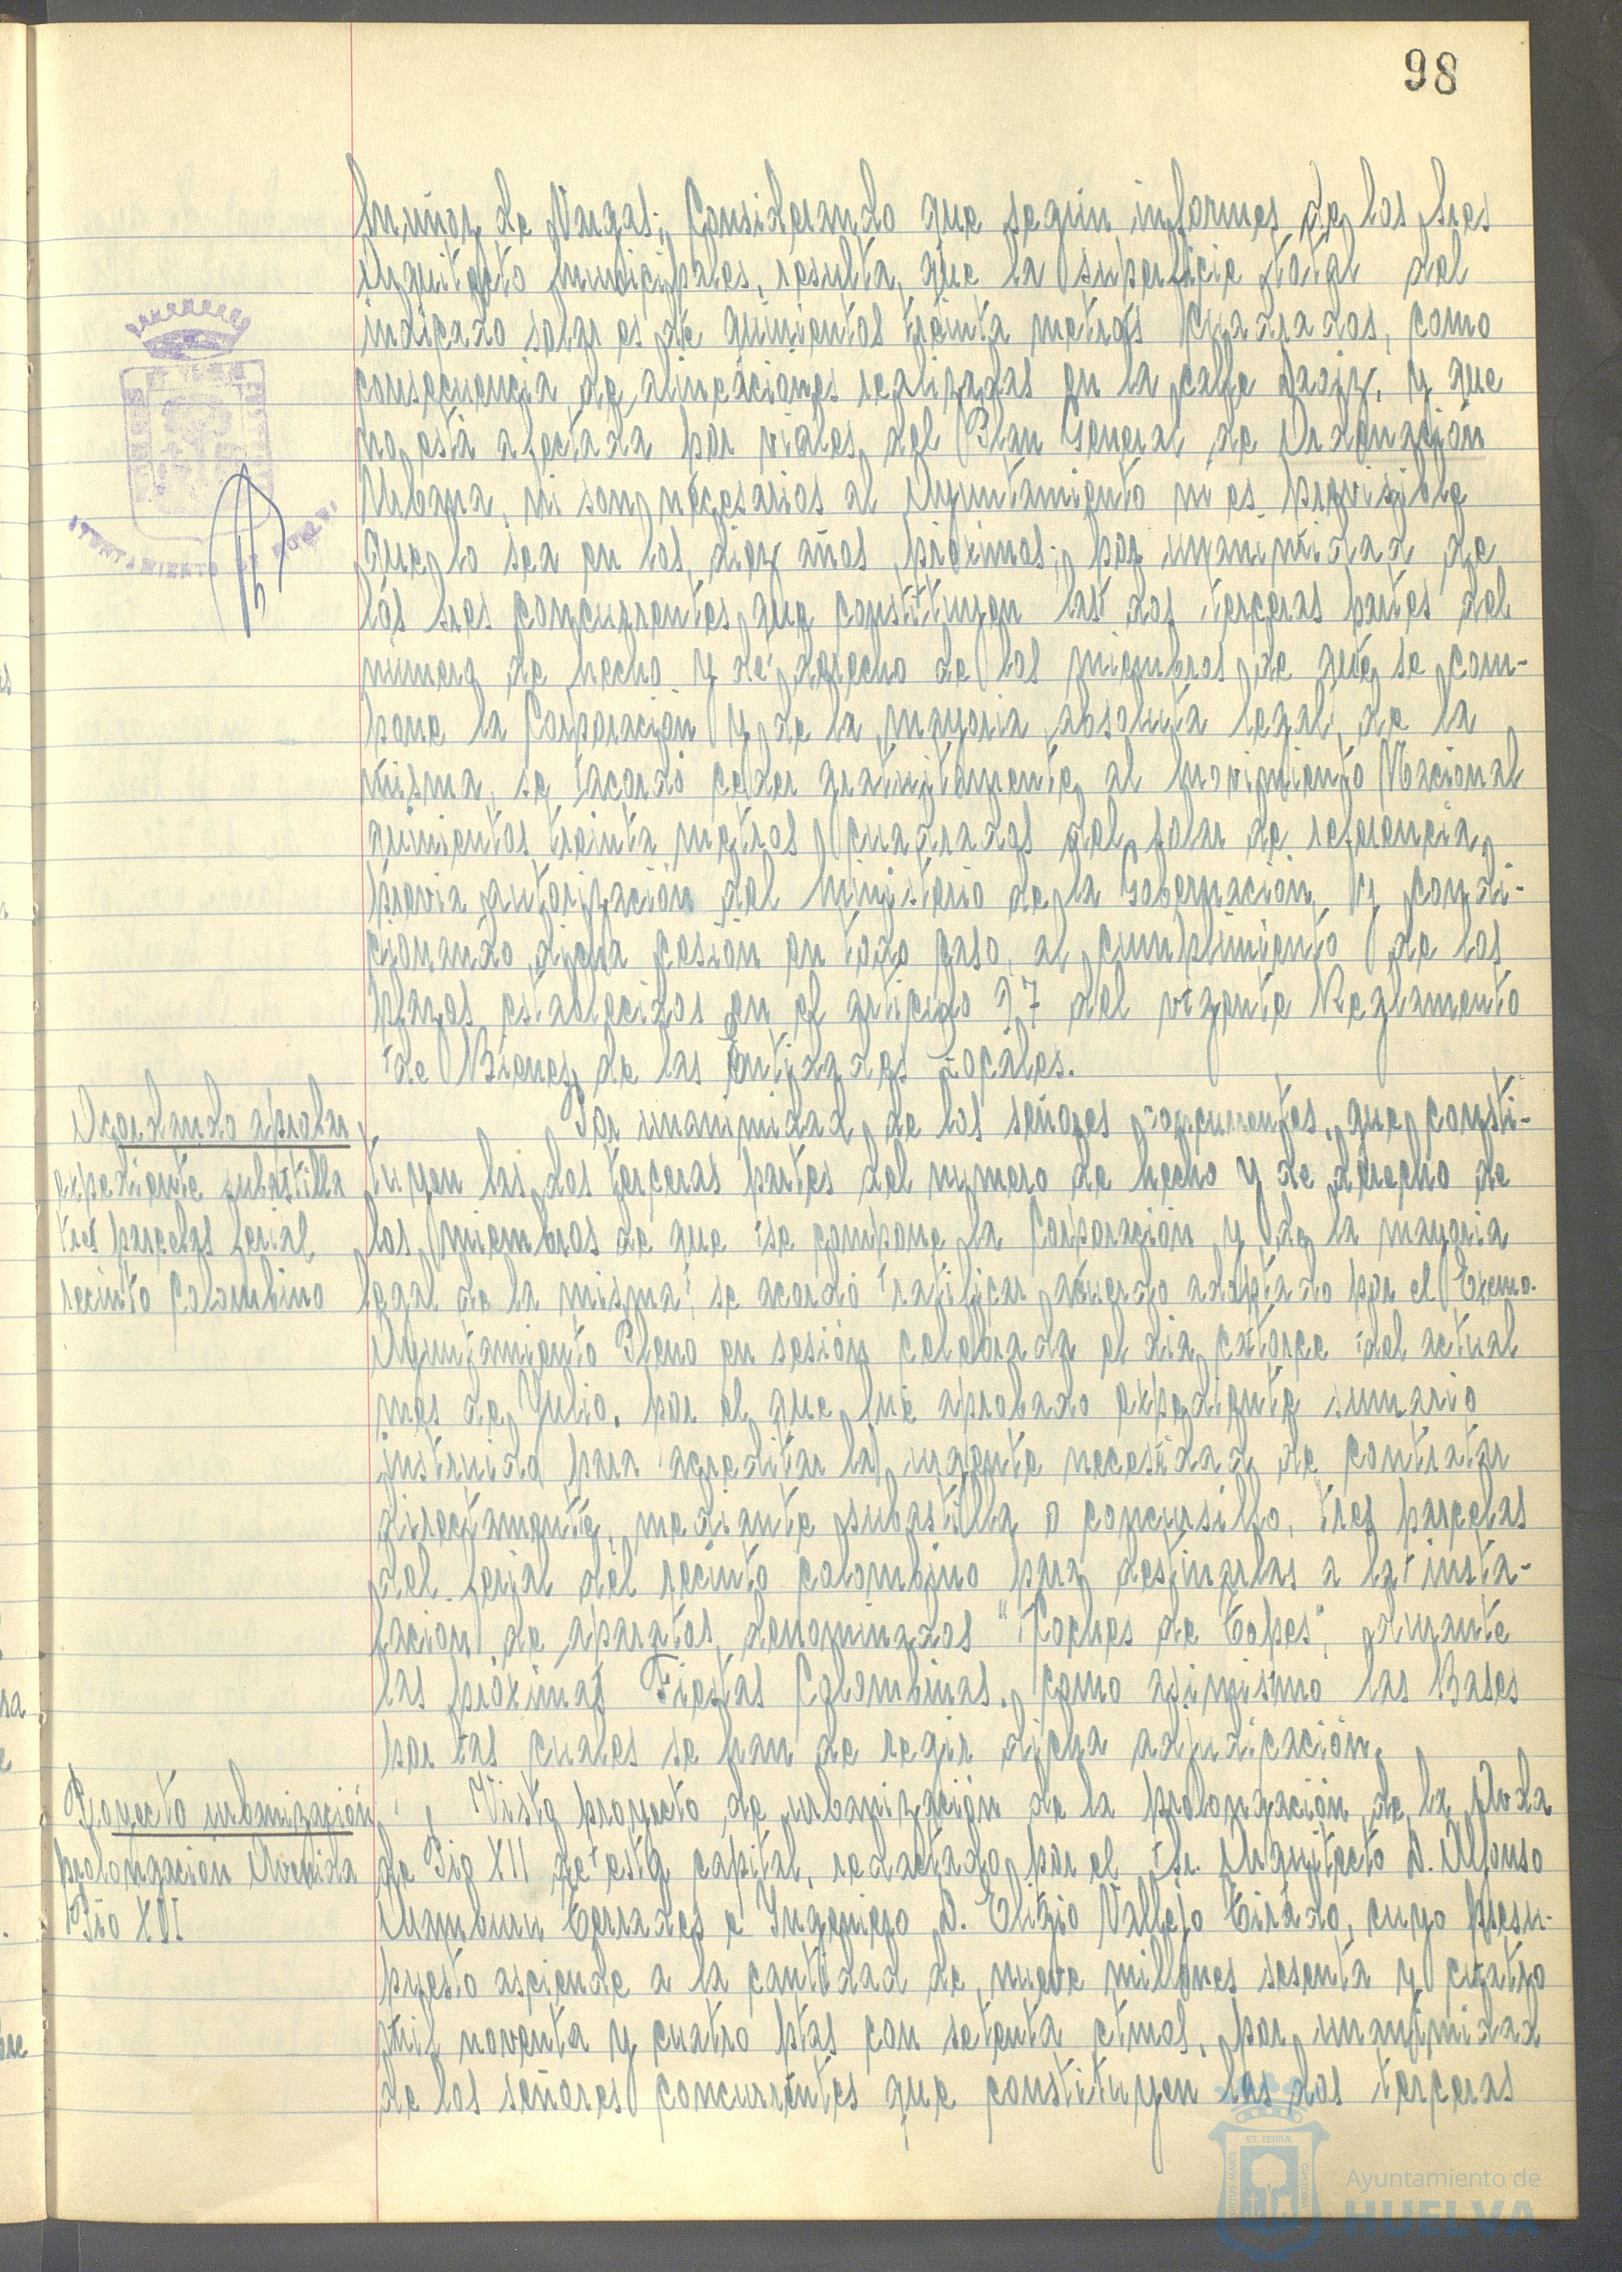 98
Muñoz de Vargas; Considerando que según informes de los Sres
Arquitecto Municipales, resulta, que la superficie total del
indicado solar es de quinientos treinta metros cuadrados, como
consecuencia de alineaciones realizadas en la calle Daoiz, y que
no está afectada por viales del Plan General de Ordenación
Urbana, ni son necesarios al Ayuntamiento ni es previsible
que lo sea en los diez años próximos; por unanimidad de
los Sres concurrentes que constituyen las dos terceras partes del
número de hecho y de derecho de los miembros de que se com-
pone la Corporación y de la mayoria absoluta legal de la
misma, se acordó ceder gratuitamente al Movimiento Nacional
quinientos treinta metros cuadrados del solar de referencia,
previa autorización del Ministerio de la Gobernación y condi-
cionando dicha cesión en todo caso, al cumplimiento de los
plazos establecidos en el articulo 97 del vigente Reglamento
de Bienes de las Entidades Locales.
AYUNTAMIENTO DE HUELVA
Acordando aprobar
expediente subastilla
tres parcelas ferial
recinto Colombino
Por unanimidad de los señores concurrentes, que consti-
tuyen las dos terceras partes del numero de hecho y de derecho de
los miembros de que se compone la Corporación y de la mayoria
legal de la misma, se acordó ratificar acuerdo adoptado por el Excmo.
Ayuntamiento Pleno en sesión celebrada el dia catorce del actual
mes de Julio, por el que fué aprobado expediente sumario
instruido para acreditar la urgente necesidad de contratar
directamente, mediante subastilla o concursillo, tres parcelas
del ferial del recinto colombino para destinarlas a la insta-
lación de aparatos denominados "Coches de Topes", durante
las próximas Fiestas Colombinas, como asimismo las Bases
por las cuales se han de regir dicha adjudicación.
Proyecto urbanización
prolongación Avenida
Pio XII
Visto proyecto de urbanización de la prolongación de la Avda
de Pio XII de esta capital, redactado por el Sr. Arquitecto D. Alfonso
Aramburu Terrades e Ingeniero D. Eligio Vallejo Tirado, cuyo presu-
puesto asciende a la cantidad de nueve millones sesenta y cuatro
mil noventa y cuatro ptas con setenta ctmos, por unanimidad
de los señores concurrentes que constituyen las dos terceras
Ayuntamiento de
HUELVA